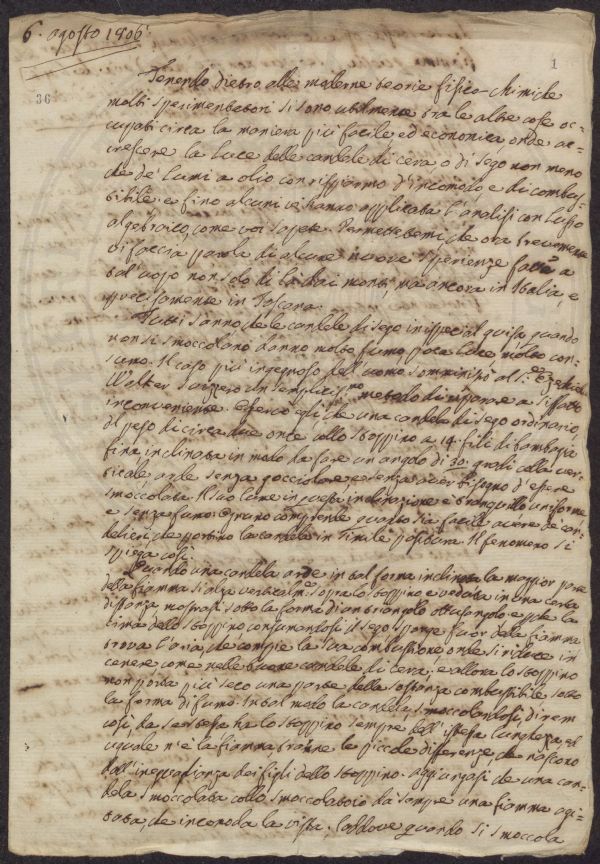 6. agosto 1806.
1
36
Tenendo dietro alle moderne teorie fisico-chimiche
molti sperimentatori si sono utilmente tra le altre cose oc=
cupati circa la maniera più facile ed economica onde ac=
crescere la luce delle candele di cera o di sego non meno
che de' lumi a olio con risparmo d'incomodo, e di combus=
tibile: e fino alcuni vi hanno applicata l'analisi con lusso
algebraico, come voi sapete. Permettetemi che ora brevemente
vi faccia parola di alcune nuove sperienze fatte a
tal uopo non solo di là dai monti, ma ancora in Italia, e
precisamente in Toscana.
Tutti sanno che le candele di sego in ispecial guisa quando
non si smoccolano danno molto fumo poca luce molto con=
sumo. Il caso più ingegnoso dell'uomo somministrò al S.r Ezechiel
Walker svizzero un semplicissmo metodo di riparare a siffatto
inconveniente. Osservò egli che una candela di sego ordinario
del peso di circa due once collo stoppino a 14 fili di bambagia
fina inclinata in modo da fare un angolo di 30. gradi colla ver=
ticale arde senza gocciolare e senza aver bisogno d'essere
smoccolata. Il suo lume in questa inclinazione è tranquillo uniforme
e senza fumo. Ognuno comprende quanto sia facile avere de' can=
delieri che portino la candela in simile positura. Il fenomeno si
spiega così.
Quando una candela arde in tal forma inclinata la maggior parte
della fiamma si alza verticalm.e sopra lo stoppino e veduta in una certa
distanza mostrasi sotto la forma d'un triangolo ottusangolo: e pche la
cima dello stoppino consumandosi il sego sporge fuor della fiamma
trova l'aria, che compie la sua combustione, onde si riduce in
cenere come nelle buone candele di cera; e allora lo stoppino
non porta più seco una parte della sostanza combustibile sotto
la forma di fumo. In tal modo la candela, smoccolandosi, direm
così, da se stessa ha lo stoppino sempre dell'istessa lunghezza, ed
uguale n'è la fiamma tranne le piccole differenze, che nascono
dall'ineguaglianza dei fili dello stoppino. Aggiungasi che una can=
dela smoccolata collo smoccolatoio dà sempre una fiamma agi=
tata, che incomoda la vista. Laddove quando si smoccola